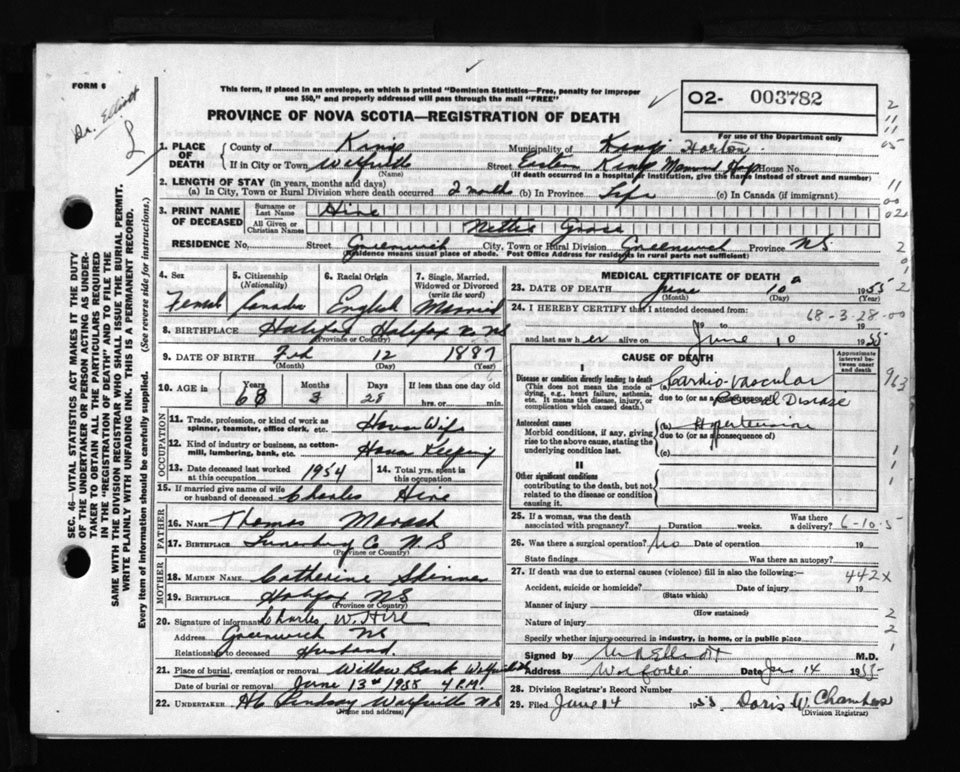 FORM 6
Dr. Elliott
This form, if placed in an envelope, on which is printed "Dominion Statistics—Free, penalty for improper
use $50," and properly addressed will pass through the mail "FREE"
O2- 003782
PROVINCE OF NOVA SCOTIA—REGISTRATION OF DEATH
For use of the Department only
1. PLACE OF DEATH
County of Kings Municipality of Kings Horton
If in City or Town Wolfville Street Eastern Kings Memorial Hosp House No.
(Name) (If death occurred in a hospital or institution, give the name instead of street and number)
2. LENGTH OF STAY (in years, months and days)
(a) In City, Town or Rural Division where death occurred 2 month (b) In Province Life (c) In Canada (if immigrant)
3. PRINT NAME OF DECEASED
Surname or Last Name
All Given or Christian Names Nettie
RESIDENCE No. Street Greenwich City, Town or Rural Division Greenwich Province N.S.
(Residence means usual place of abode. Post Office Address for residents in rural parts not sufficient)
4. Sex 5. Citizenship (Nationality) 6. Racial Origin 7. Single, Married, Widowed or Divorced (write the word)
Female Canada English Married
8. BIRTHPLACE Halifax Halifax Co NS
(Province or Country)
9. DATE OF BIRTH Feb 12 1887
(Month) (Day) (Year)
10. AGE in Years Months Days If less than one day old
68 3 28 hrs. or min.
OCCUPATION
11. Trade, profession, or kind of work as spinner, teamster, office clerk, etc. House Wife
12. Kind of industry or business, as cotton-mill, lumbering, bank, etc. House Keeping
13. Date deceased last worked at this occupation 1954 14. Total yrs. spent in this occupation
15. If married give name of wife or husband of deceased Charles
FATHER
16. NAME Thomas
17. BIRTHPLACE Lunenburg Co. N S
(Province or Country)
MOTHER
18. MAIDEN NAME Catherine Skinner
19. BIRTHPLACE Halifax NS
(Province or Country)
20. Signature of informant Charles W.
Address Greenwich NS
Relationship to deceased Husband
21. Place of burial, cremation or removal Willow Bank Wolfville
Date of burial or removal June 13th 1955 4 P.M.
22. UNDERTAKER Lindsay Wolfville NS
(Name and address)
MEDICAL CERTIFICATE OF DEATH
23. DATE OF DEATH June 10th 1955
(Month) (Day) (Year)
24. I HEREBY CERTIFY that I attended deceased from:
68-3-28-00
19 to 19
and last saw her alive on June 10 1955
CAUSE OF DEATH
Approximate interval between onset and death
963
I
Disease or condition directly leading to death (a) Cardio-Vascular
(This does not mean the mode of dying, e.g., heart failure, asthenia, etc. It means the disease, injury, or complication which caused death.)
due to (or as a consequence of) Renal Disease
Antecedent causes (b) Hypertension
Morbid conditions, if any, giving rise to the above cause, stating the underlying condition last.
due to (or as a consequence of)
(c)
II
Other significant conditions
contributing to the death, but not related to the disease or condition causing it.
25. If a woman, was the death associated with pregnancy? Duration weeks. Was there a delivery? 6-10-5
26. Was there a surgical operation? No Date of operation 19
State findings Was there an autopsy?
27. If death was due to external causes (violence) fill in also the following:- 442X
Accident, suicide or homicide? Date of injury 19
(State which)
Manner of injury
(How sustained)
Nature of injury
Specify whether injury occurred in industry, in home, or in public place
Signed by Elliott M.D.
Address Wolfville Date June 14 1955
28. Division Registrar's Record Number
29. Filed June 14 1955 Doris W. Chambers
(Division Registrar)
SEC. 46—VITAL STATISTICS ACT MAKES IT THE DUTY
OF THE UNDERTAKER OR PERSON ACTING AS UNDER-
TAKER TO OBTAIN ALL THE PARTICULARS REQUIRED
IN THE "REGISTRATION OF DEATH" AND TO FILE THE
SAME WITH THE DIVISION REGISTRAR WHO SHALL ISSUE THE BURIAL PERMIT.
WRITE PLAINLY WITH UNFADING INK. THIS IS A PERMANENT RECORD.
Every item of information should be carefully supplied. (See reverse side for instructions.)